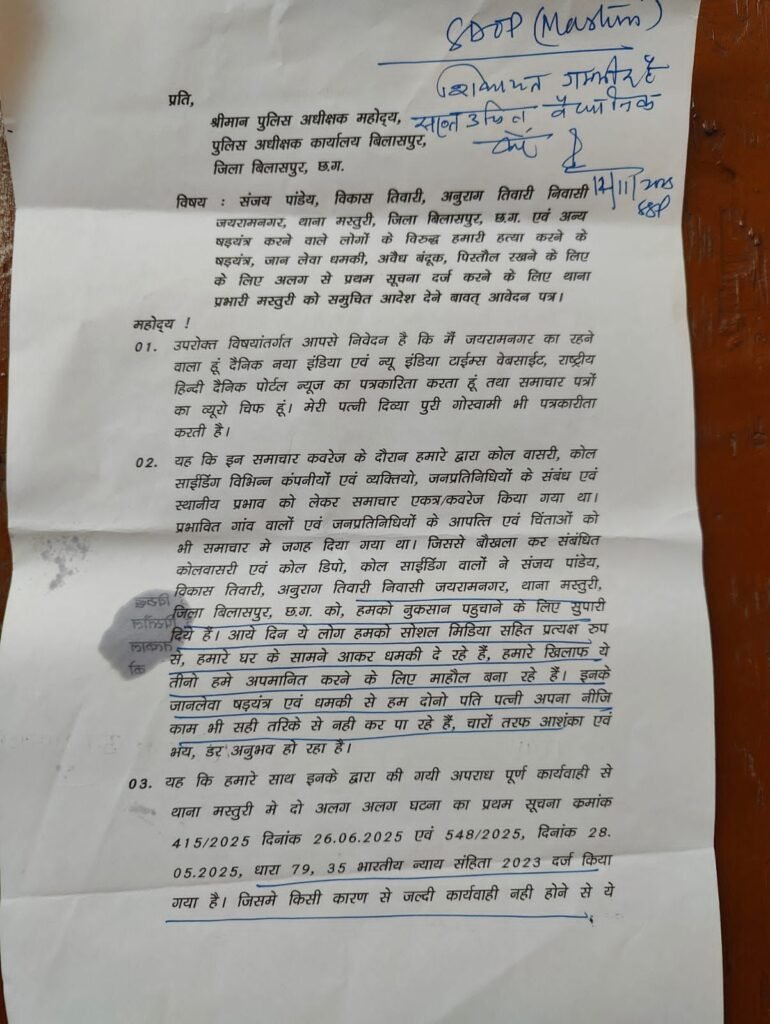 SDOP (Masturi)
शिकायत गम्भीर है
उचित वैधानिक
करें
12/11/2025
SSP
प्रति,
श्रीमान पुलिस अधीक्षक महोद्य,
पुलिस अधीक्षक कार्यालय बिलासपुर,
जिला बिलासपुर, छ.ग.
विषय : संजय पांडेय, विकास तिवारी, अनुराग तिवारी निवासी
जयरामनगर, थाना मस्तुरी, जिला बिलासपुर, छ.ग. एवं अन्य
षड़यंत्र करने वाले लोगों के विरुद्ध हमारी हत्या करने के
षड़यंत्र, जान लेवा धमकी, अवैध बंदूक, पिस्तौल रखने के लिए
के लिए अलग से प्रथम सूचना दर्ज करने के लिए थाना
प्रभारी मस्तुरी को समुचित आदेश देने बावत् आवेदन पत्र।
महोद्य !
01. उपरोक्त विषयांतर्गत आपसे निवेदन है कि मैं जयरामनगर का रहने
वाला हूं दैनिक नया इंडिया एवं न्यू इंडिया टाईम्स वेबसाईट, राष्ट्रीय
हिन्दी दैनिक पोर्टल न्यूज का पत्रकारिता करता हूं तथा समाचार पत्रों
का व्यूरो चिफ हूं। मेरी पत्नी दिव्या पुरी गोस्वामी भी पत्रकारीता
करती है।
02. यह कि इन समाचार कवरेज के दौरान हमारे द्वारा कोल वासरी, कोल
साईडिंग विभिन्न कंपनीयों एवं व्यक्तियो, जनप्रतिनिधियों के संबंध एवं
स्थानीय प्रभाव को लेकर समाचार एकत्र/कवरेज किया गया था।
प्रभावित गांव वालों एवं जनप्रतिनिधियों के आपत्ति एवं चिंताओं को
भी समाचार मे जगह दिया गया था। जिससे बौखला कर संबंधित
कोलवासरी एवं कोल डिपो, कोल साईडिंग वालों ने संजय पांडेय,
विकास तिवारी, अनुराग तिवारी निवासी जयरामनगर, थाना मस्तुरी,
जिला बिलासपुर, छ.ग. को, हमको नुकसान पहुचाने के लिए सुपारी
दिये हैं। आये दिन ये लोग हमको सोशल मिडिया सहित प्रत्यक्ष रुप
से, हमारे घर के सामने आकर धमकी दे रहे हैं, हमारे खिलाफ ये
तीनो हमे अपमानित करने के लिए माहौल बना रहे हैं। इनके
जानलेवा षड़यंत्र एवं धमकी से हम दोनो पति पत्नी अपना नीजि
काम भी सही तरिके से नही कर पा रहे हैं, चारों तरफ आशंका एवं
भय, डर अनुभव हो रहा है।
03. यह कि हमारे साथ इनके द्वारा की गयी अपराध पूर्ण कार्यवाही से
थाना मस्तुरी मे दो अलग अलग घटना का प्रथम सूचना कमांक
415/2025 दिनांक 26.06.2025 एवं 548/2025, दिनांक 28.
05.2025, धारा 79, 35 भारतीय न्याय संहिता 2023 दर्ज किया
गया है। जिसमे किसी कारण से जल्दी कार्यवाही नही होने से ये